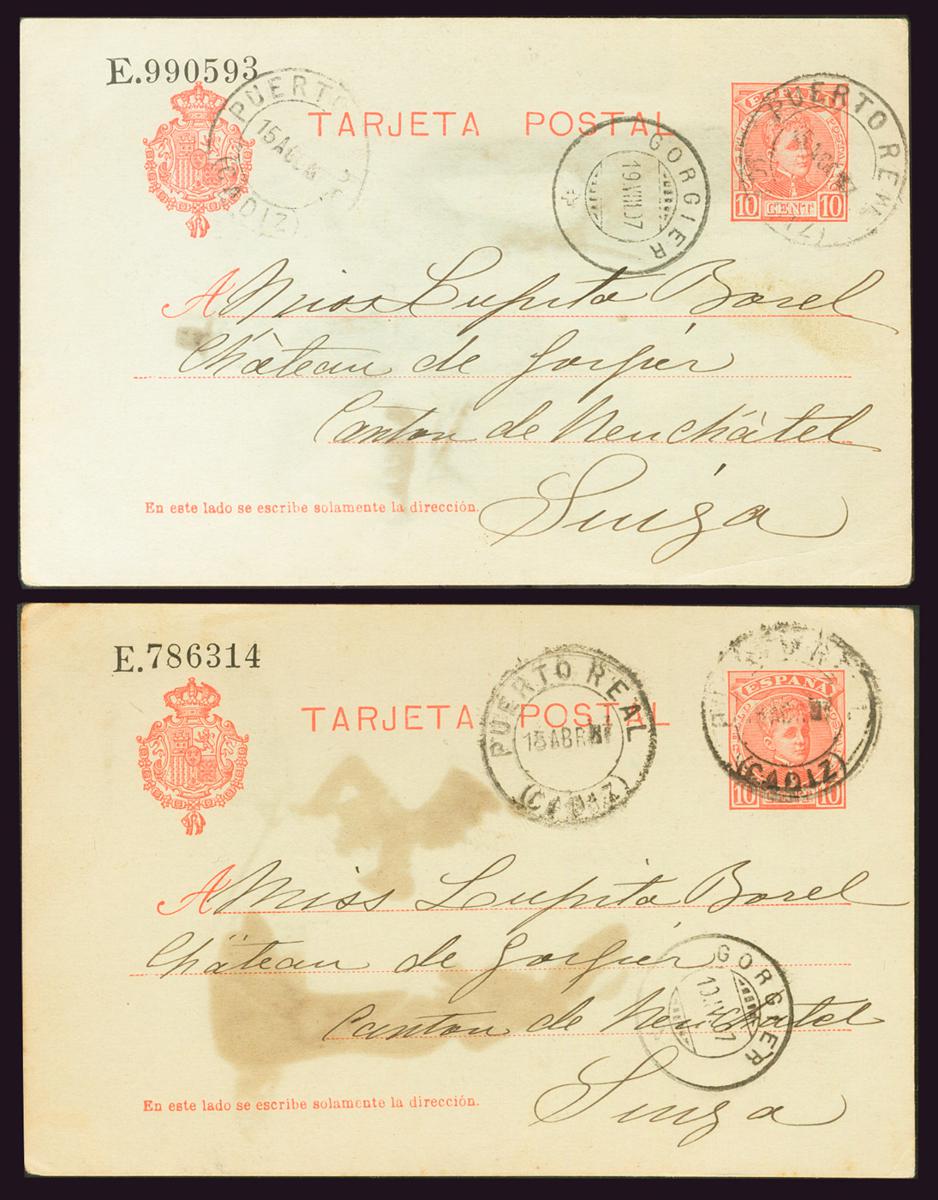 E.990593
PUERTO
15 AGO
(CADIZ)
TARJETA POSTAL
GORGIER
19.VIII.07
PUERTO REAL
10 CENT 10
A Miss Lupita Borel
Château de Gorgier
Canton de Neuchâtel
Suiza
En este lado se escribe solamente la dirección.
E.786314
TARJETA POSTAL
PUERTO REAL
15 ABR
(CADIZ)
ESPAÑA
(CADIZ)
10 10
A Miss Lupita Borel
Château de Gorgier
Canton de Neuchatel
Suiza
GORGIER
En este lado se escribe solamente la dirección.